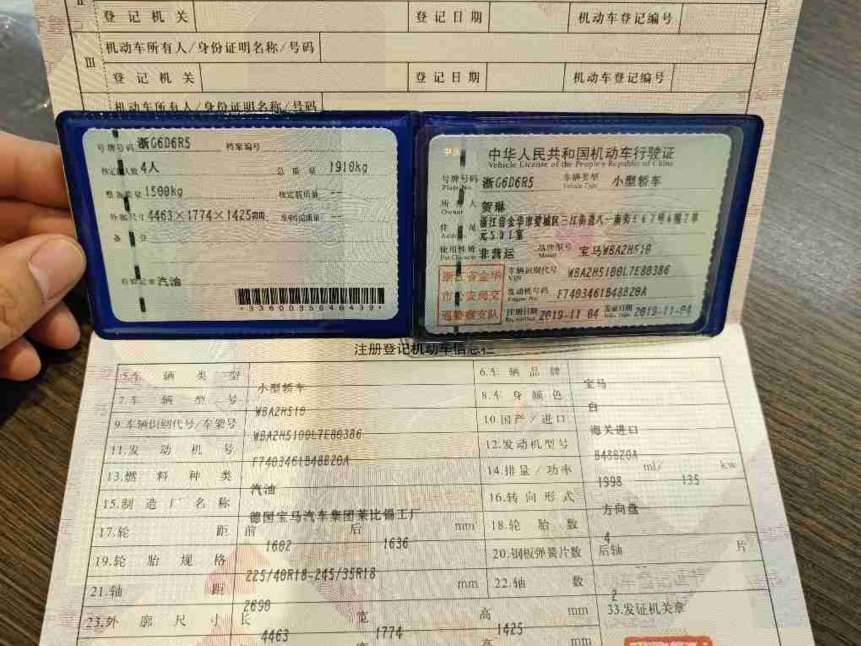 登记机关 登记日期 机动车登记编号
III 机动车所有人/身份证明名称/号码
登记机关 登记日期 机动车登记编号
机动车所有人/身份证明名称/号码
号牌号码 浙G6D6R5 档案编号
核定载人数 4人 总质量 1910kg
整备质量 1500kg 核定载质量 --
外廓尺寸 4463×1774×1425mm --
备注
汽油
中华人民共和国机动车行驶证
Vehicle License of the People's Republic of China
号牌号码 浙G6D6R5 车辆类型 小型轿车
Plate No. Vehicle Type
所有人 贺琳
Owner
住址 浙江省金华市婺城区三江街道八一南街
Address
使用性质 非营运 品牌型号 宝马WBA2H510
Use Character Model
浙江省金华
市公安局交
通警察支队
车辆识别代号 WBA2H5100L7E80386
VIN
发动机号码 F7403461B48B20A
Engine No.
注册日期 2019-11-04 发证日期 2019-11-04
Register Date Issue Date
注册登记机动车信息栏
5.车辆类型 小型轿车 6.车辆品牌 宝马
7.车辆型号 WBA2H510 8.车身颜色 白
9.车辆识别代号/车架号 WBA2H5100L7E80386 10.国产/进口 海关进口
11.发动机号 F7403461B48B20A 12.发动机型号 B48B20A
13.燃料种类 汽油 14.排量/功率 1998 ml/ 135 kw
15.制造厂名称 德国宝马汽车集团莱比锡工厂 16.转向形式 方向盘
17.轮距 前 1602 后 1636 mm 18.轮胎数 4
19.轮胎规格 225/40R18-245/35R18 20.钢板弹簧片数 后轴 片
21.轴距 2690 mm 22.轴数 2
23.外廓尺寸 长 4463 宽 1774 高 1425 mm 33.发证机关章
mm